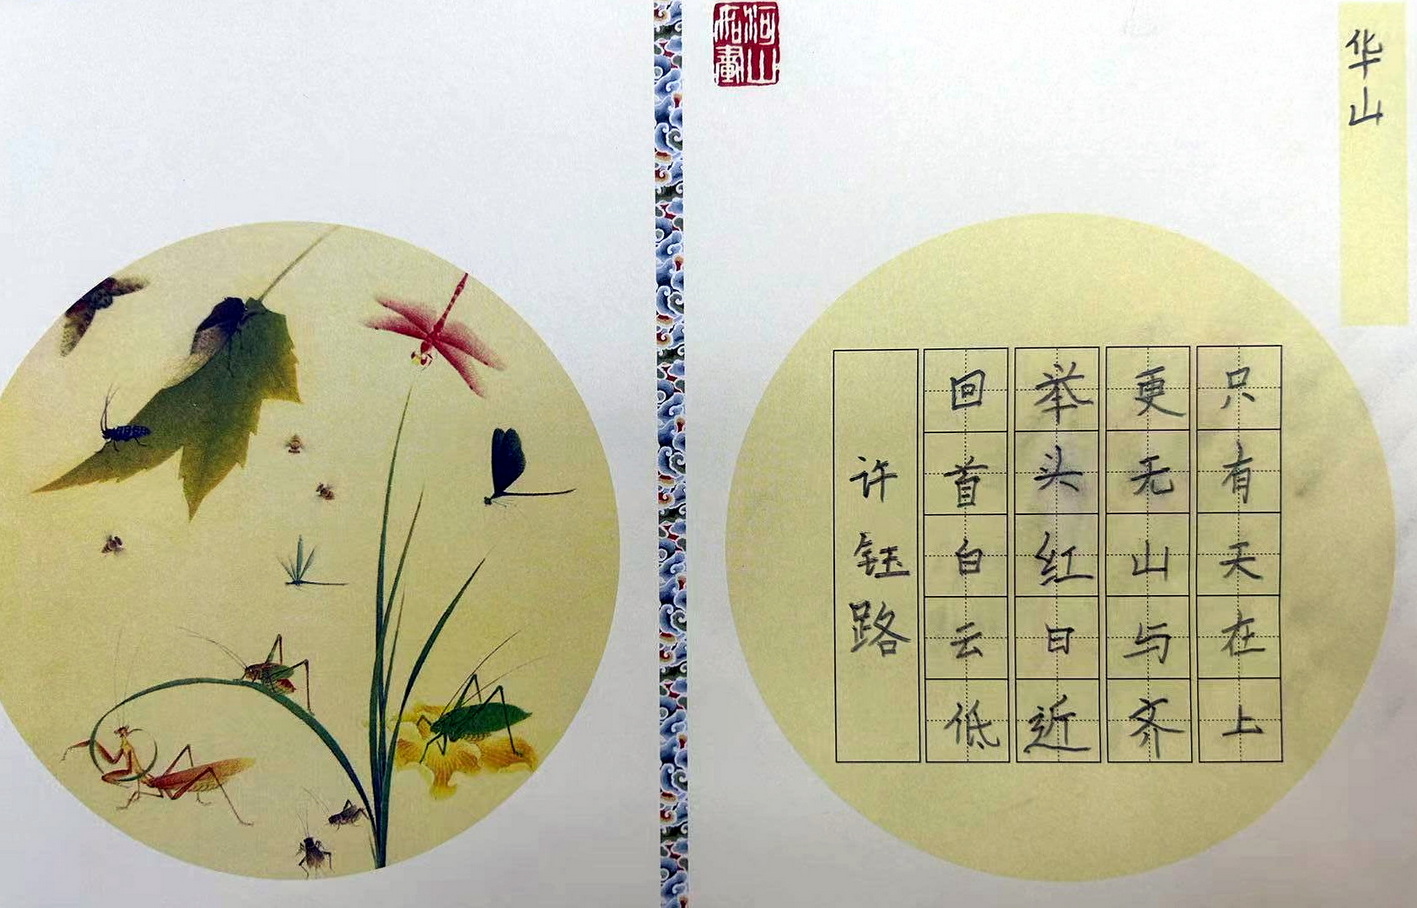 华山
只有天在上
更无山与齐
举头红日近
回首白云低
许钰路
河山如画